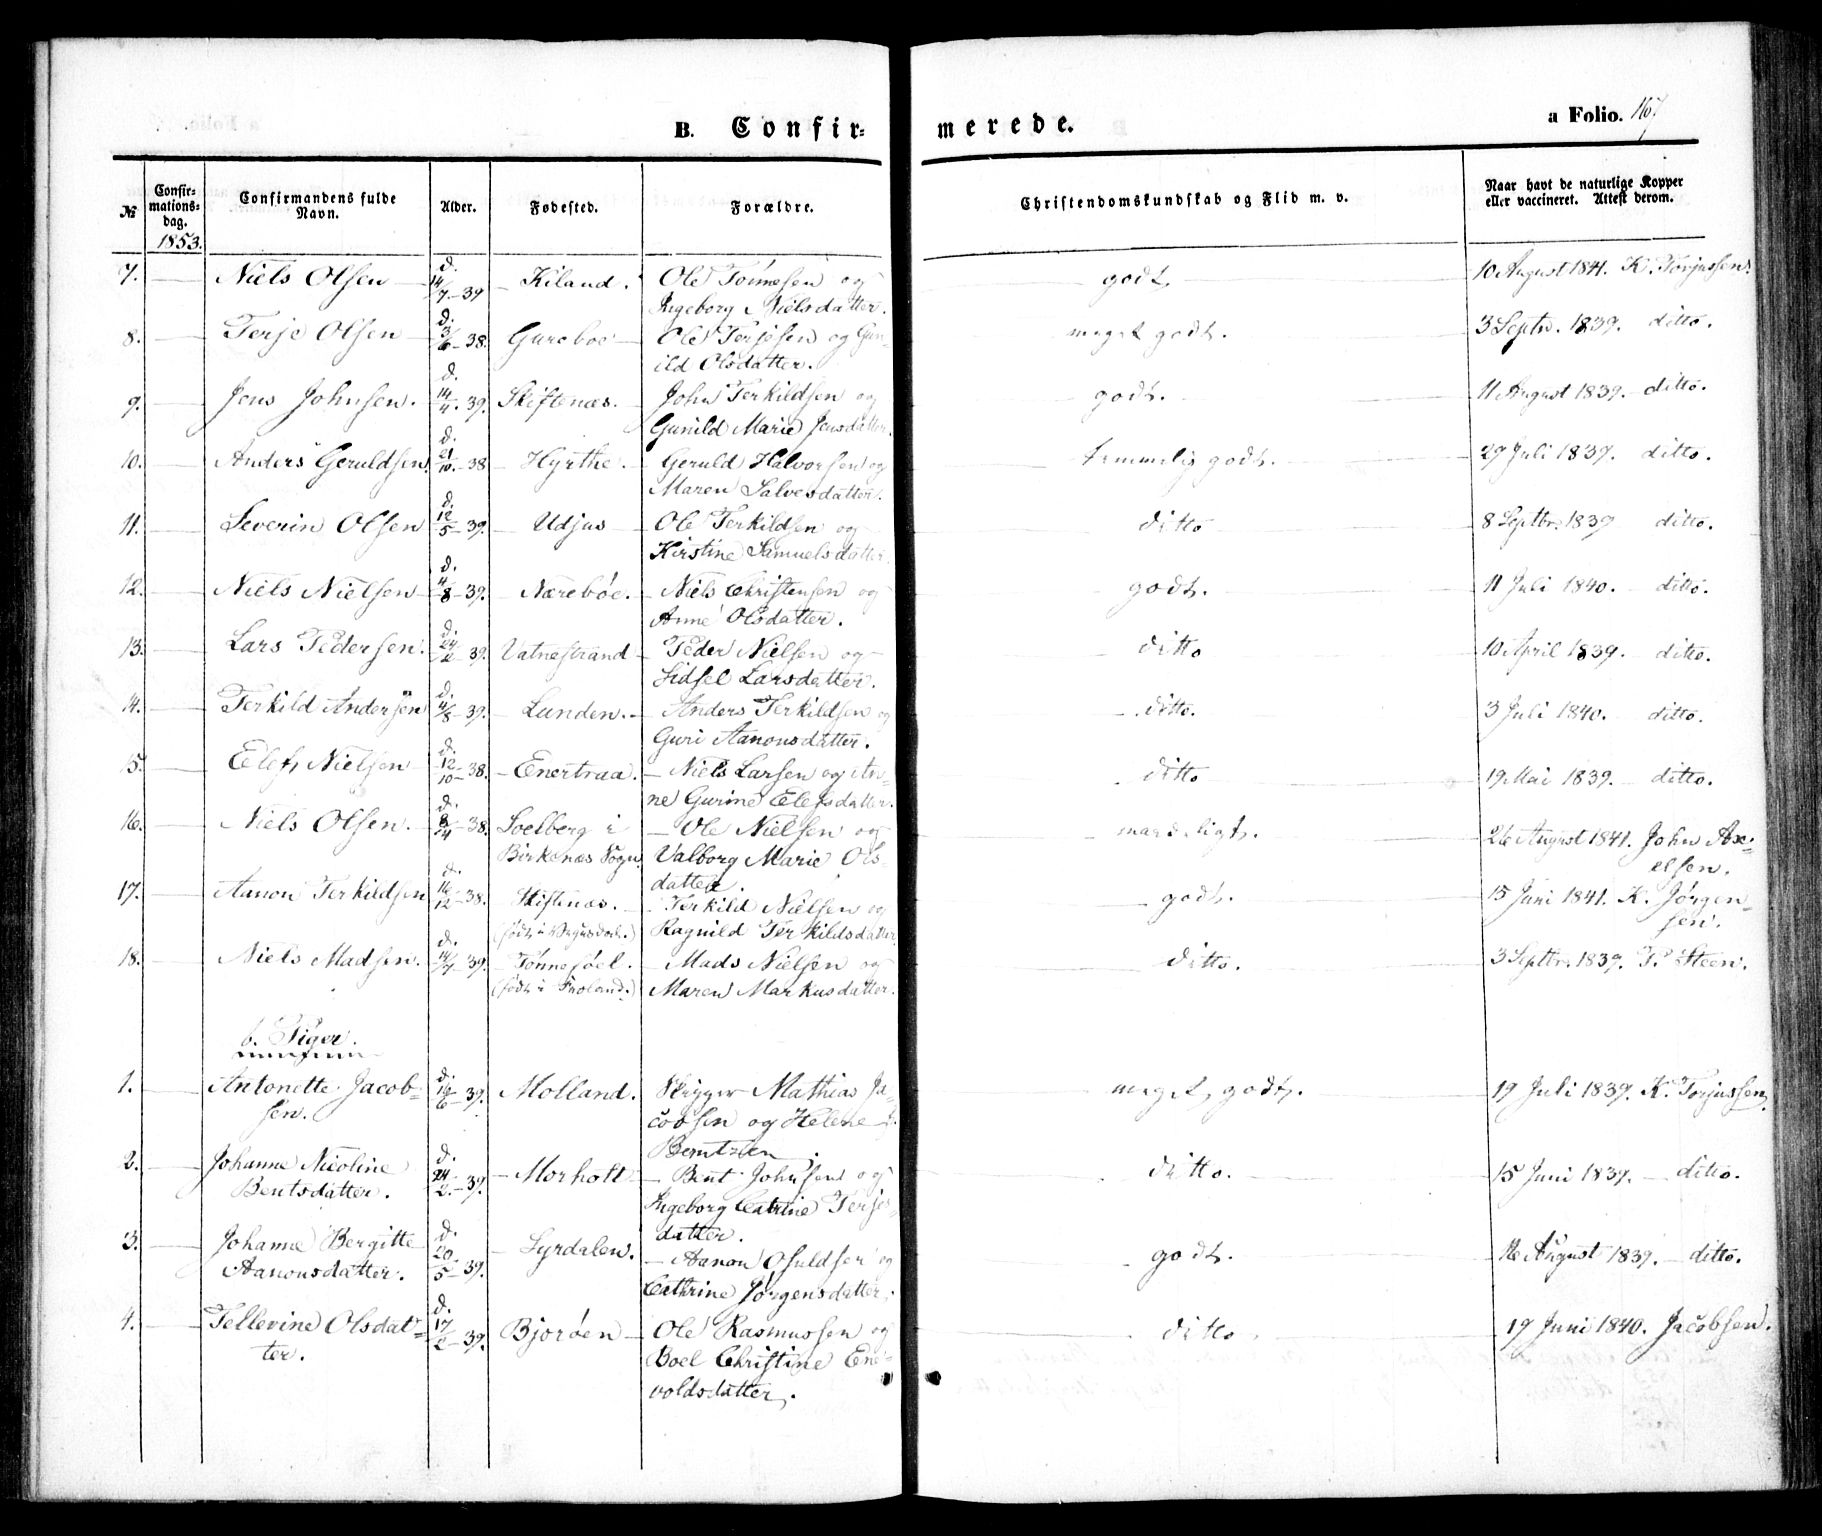 B. Confir-
merede.
a Folio. 167
№
Confir-
mations-
dag.
1853.
Confirmandens fulde
Navn.
Alder.
Fødested.
Forældre.
Christendomskundskab og Flid m. v.
Naar havt de naturlige Kopper
eller vaccineret. Attest derom.
7. Niels Olsen d. 14/7-39 Kiland. Ole Tønnesen og godt. 10 August 1841. K. Torjussen.
Ingeborg Nielsdatter.
8. Terje Olsen d. 3/6-38. Gureboe Ole Terjesen og Gun- meget godt. 3 Septbr. 1839. ditto.
ild Olsdatter.
9. Jens Johnsen. d. 14/4-39. Skiftenæs. John Terkildsen og godt. 11 August 1839. ditto.
Gunild Marie Jensdatter.
10. Anders Geruldsen. d. 21/10-38 Hyrthe. Geruld Halvorsen og temmelig godt. 29 Juli 1839. ditto.
Maren Salvesdatter.
11. Severin Olsen d. 12/5-39. Udjus Ole Terkildsen og ditto 8 Septbr. 1839 ditto.
Kirstine Samuelsdatter
12. Niels Nielsen d. 4/8-39. Nærebøe. Niels Christensen og godt. 11 Juli 1840. ditto.
Anne Olsdatter.
13. Lars Pedersen. d. 24/2-39. Vatnestrand Peder Nielsen og ditto 10 April 1839. ditto.
Sidsel Larsdatter.
14. Terkild Andersen d. 4/8-39. Lunden. Anders Terkildsen og ditto. 3 Juli 1840. ditto.
Guri Aanonsdatter.
15. Elef Nielsen d. 12/10-38. Enertraa. Niels Larsen og An- ditto 19 Mai 1839. ditto.
ne Gurine Elefsdatter.
16. Niels Olsen. d. -38. Soelberg i Ole Nielsen og maadeligt. 26 August 1841. John Ax-
Birkenæs Sogn. Valborg Marie Ols- elsen.
datter.
17. Aanon Terkildsen d. 16/12-38. Skiftenæs. Terkild Nielsen og godt. 15 Juni 1841. K. Jørgen-
(født i Vegusdal.) Ragnild Terkildsdatter. sen.
18. Niels Madsen. d. 14/7-39. Tønnesøel. Mads Nielsen og ditto. 3 Septbr. 1839. P. Steen.
(født i Froland.) Maren Markusdatter.
b. Piger.
1. Antonette Jacob- d. 16/6-39. Molland. Skipper Mathias Ja- meget godt. 19 Juli 1839. K. Torjussen.
sen. cobsen og Helene
Berntzen.
2. Johanne Nicoline d. 24/2-39. Morholt. Bent Johnsen og ditto. 15 Juni 1839. ditto.
Bentsdatter. Ingeborg Catrine Terjes-
datter.
3. Johanne Bergitte d. 20/5-39. Syrdalen. Aanon Osuldsen og godt. 16 August 1839. ditto.
Aanonsdatter. Cathrine Jørgensdatter.
4. Tellevine Olsdat- d. 17/2-39. Bjorøen Ole Rasmussen og ditto. 19 Juni 1840. Jacobsen.
ter. Boel Christine Ene-
voldsdatter.